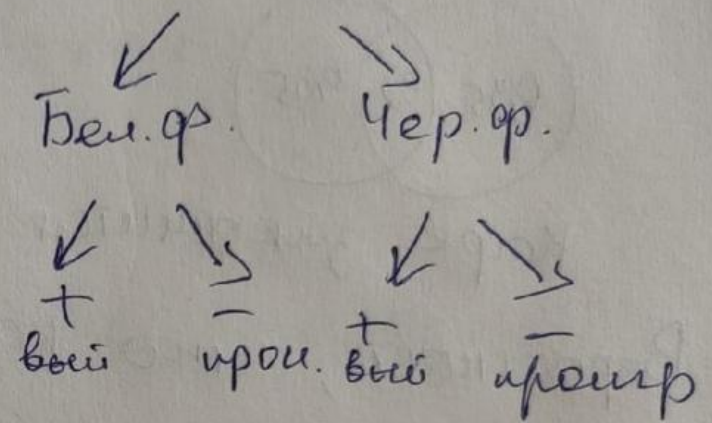 Бел. ф. Чер. ф.
+ - + -
вый прои. вый проигр